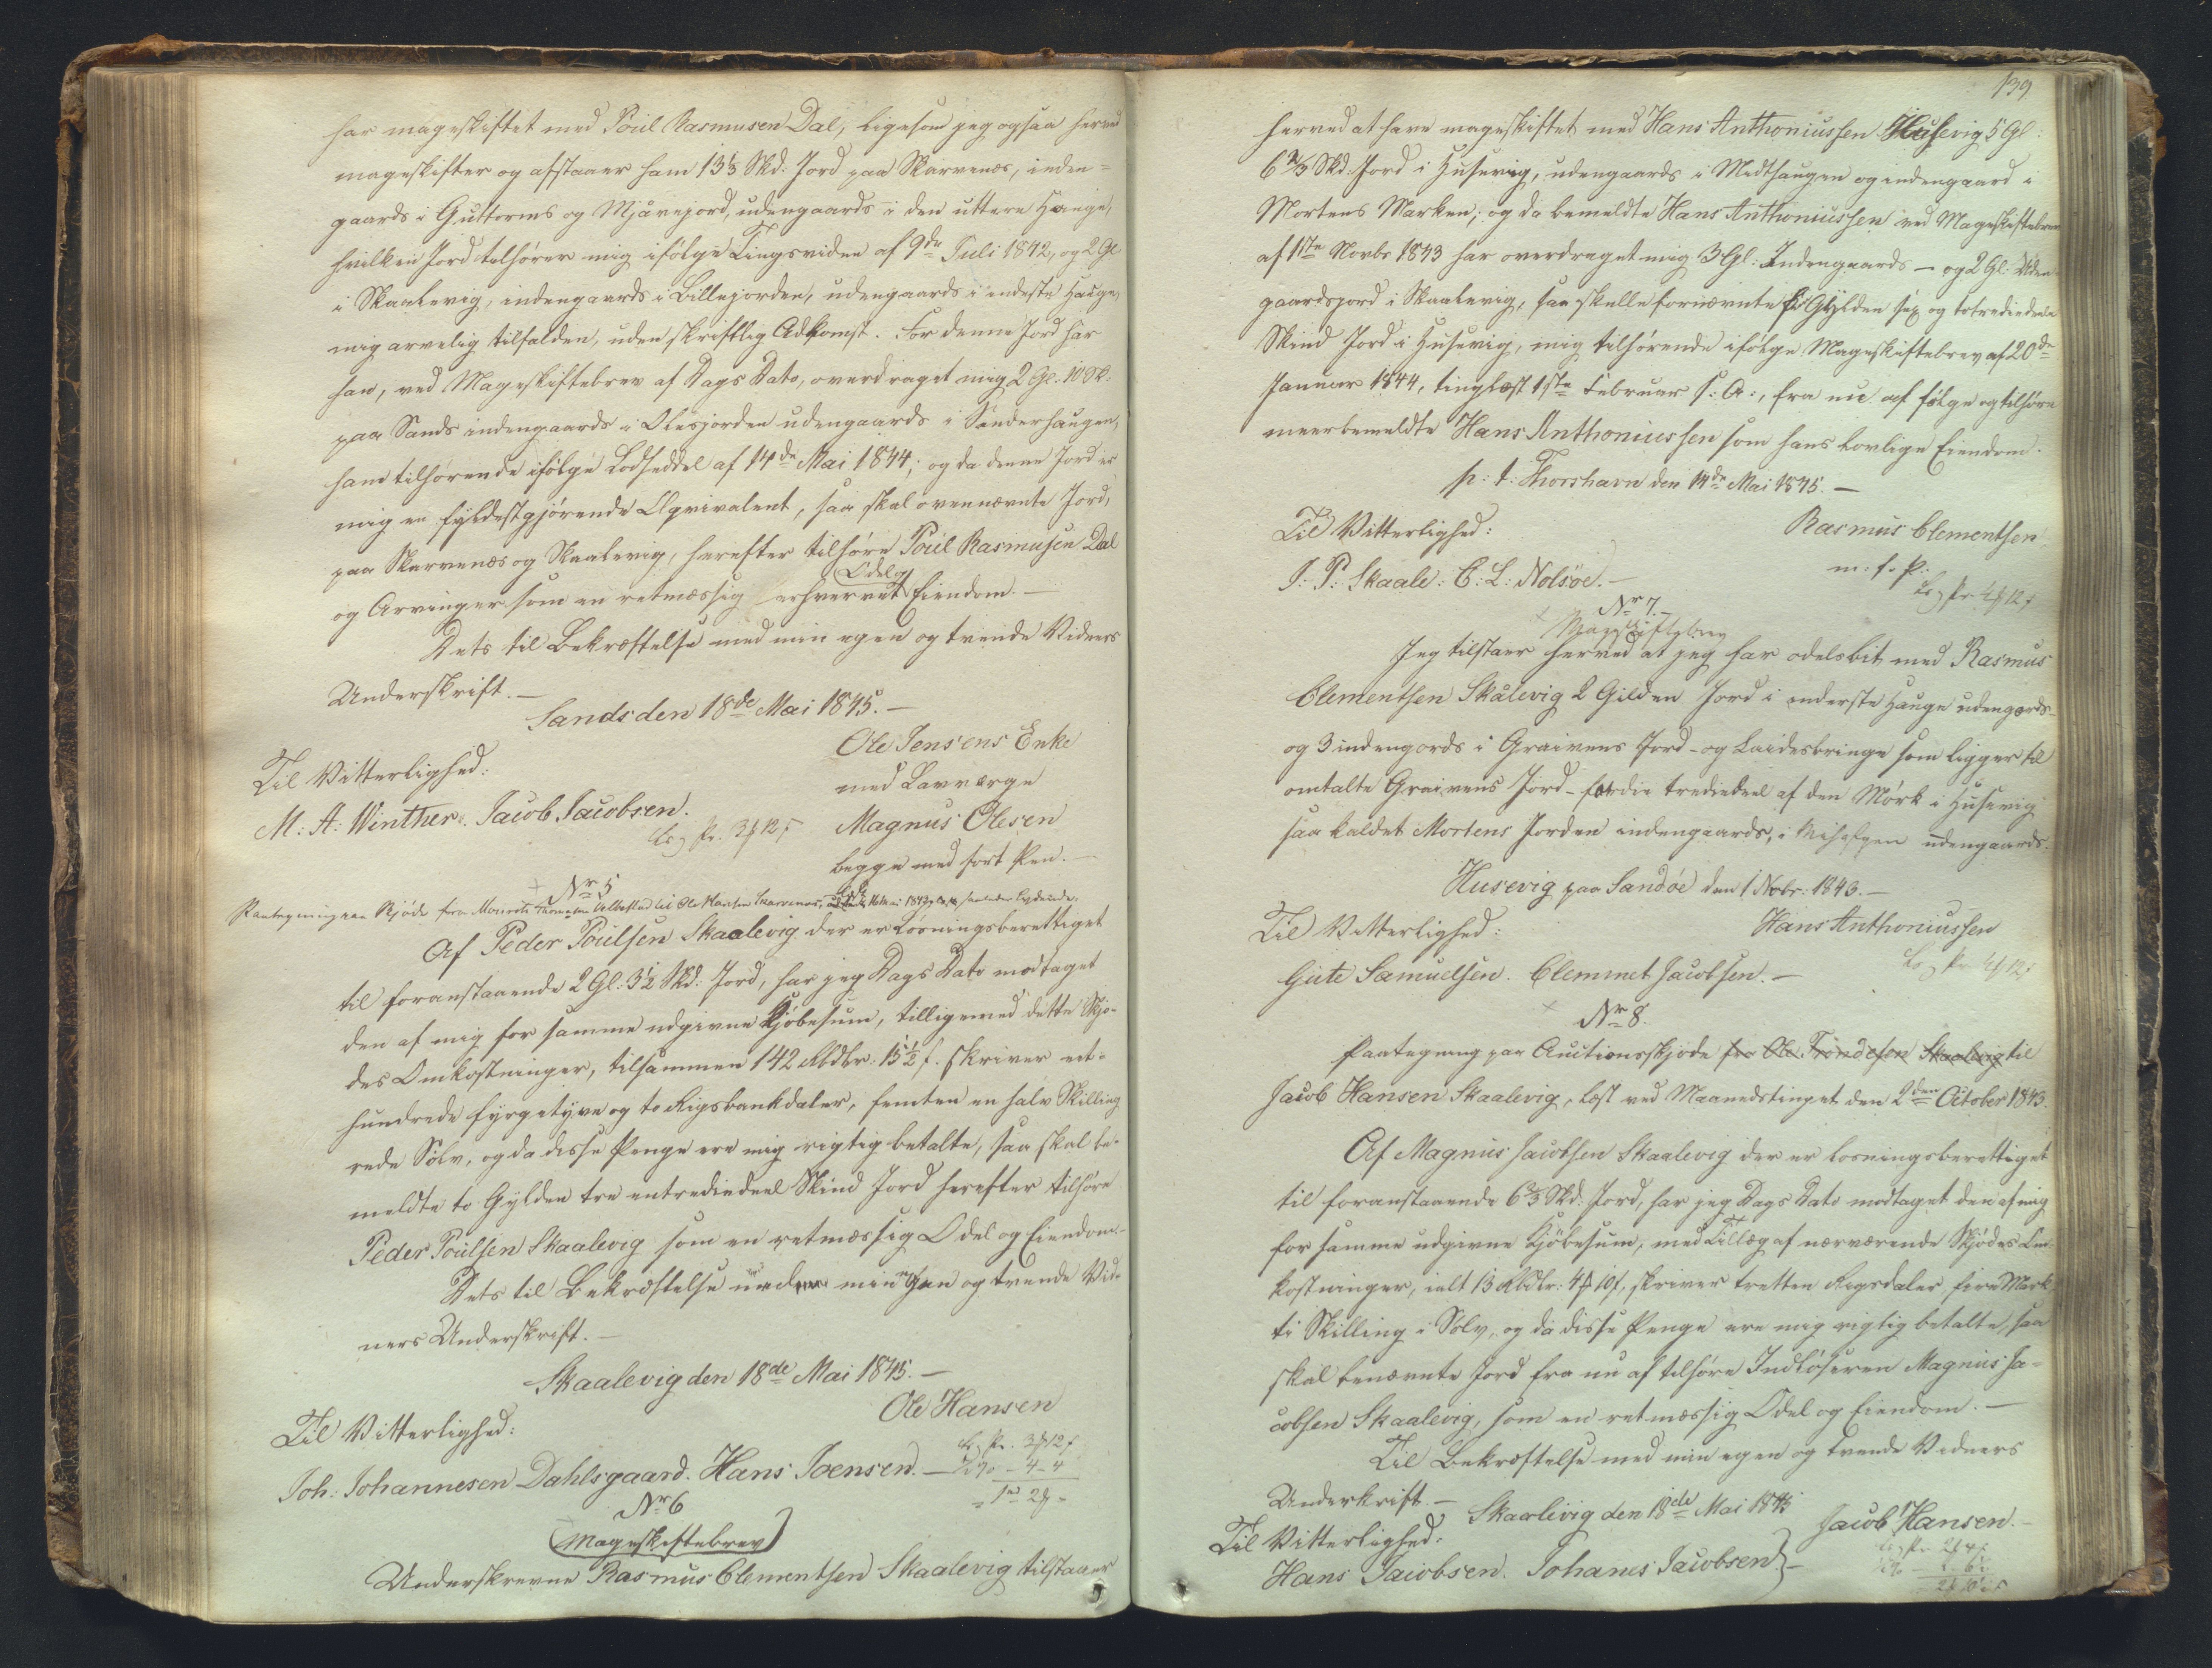 har mageskiftet med Poul Rasmusen Dal, ligesom jeg ogsaa herved
mageskifter og afstaaer ham 13⅓ Skd. Jord paa Skarvenæs, inden=
gaards i Guttorms og Mjåvejord, udengaards i den uttere Hauge,
hvilken Jord tilhører mig ifølge Tingsvidne af 9de Juli 1842, og 2 Gl
i Skaalevig, indengaards i Lillejorden, udengaards i enderste Hauge,
mig arvelig tilfalden, uden skriftlig Adkomst. For denne Jord har
han, ved Mageskiftebrev af Dags Dato, overdraget mig 2 Gl. 10 Sk:
paa Sands indengaards i Olesjorden udengaards i Sønderhaugen,
ham tilhørende ifølge Lodseddel af 14de Mai 1844; og da denne Jord er
mig en fyldestgjørende Eqvivalent, saa skal ovennævnte Jord,
paa Skarvenæs og Skaalevig, herefter tilhøre Poul Rasmusen Dal
og Arvinger som en retmæssig erhvervet Odel og Eiendom. —
Dets til Bekræftelse med min egen og tvende Vidners
Underskrift. —
Sands den 18de Mai 1845. —
Ole Jensens Enke
Til Vitterlighed:
med Lavværge
M: A: Winther. Jacob Jacobsen.
Magnus Olesen
begge med ført Pen. —
Nr 5
Paategning paa Skjøde fra Mourits Thomasen Velbestad til Ole Hansen Skarvenæs, 16 Mai 1843
Af Peder Poulsen Skaalevig der er løsningsberettiget
til foranstaaende 2 Gl: 3½ Skd: Jord, har jeg Dags Dato modtaget
den af mig for samme udgivne Kjøbesum, tilligemed dette Skjø-
des Omkostninger, tilsammen 142 Rbdlr: 15½ s. skriver et-
hundrede fyrgetyve og to Rigsbankdaler, femten en halv Skilling
rede Sølv, og da disse Penge ere mig rigtig betalte, saa skal be-
meldte to Gylden tre entrediedeel Skind Jord herefter tilhøre
Peder Poulsen Skaalevig som en retmæssig Odel og Eiendom.
Dets til Bekræftelse under min egen og tvende Vid-
ners Underskrift. —
Skaalevig den 18de Mai 1845. —
Ole Hansen
Til Vitterlighed:
Joh: Johannesen Dahlsgaard. Hans Joensen. —
Nr 6
(Mageskiftebrev)
Underskrevne Rasmus Clementsen Skaalevig tilstaaer
139
herved at have mageskiftet med Hans Anthoniussen Husevig 5 Gl:
6⅔ Skd: Jord i Husevig, udengaards i Midthaugen og indengaard i
Mortens Marken; og da bemeldte Hans Anthoniussen ved Mageskiftebrev
af 1ste Novbr 1843 har overdraget mig 3 Gl: Indengaards — og 2 Gl: Uden
gaardsjord i Skaalevig, saa skulle fornævnte Gylden sex og totrediedeele
Skind Jord i Husevig, mig tilhørende ifølge Mageskiftebrev af 20de
Januar 1844, tinglæst 1ste Februar s: A:, fra nu af følge og tilhøre
meerbemeldte Hans Anthoniussen som hans lovlige Eiendom.
p: t: Thorshavn den 14de Mai 1845. —
Til Vitterlighed:
Rasmus Clementsen
J: P: Skaale: C: L: Nolsøe. —
m: f: P:
Nr 7. —
Mageskiftebrev
Jeg tilstaaer herved at jeg har odelsbit med Rasmus
Clementsen Skålevig 2 Gilden Jord i enderste Hauge udengords-
og 3 indengords i Graivens Jord - og Laidesbringe som ligger til
omtalte Graivens Jord - for die trediedeel af den Mørk i Husevig
saa kaldet Mortens Jorden indengaards, i udengaards.
Husevig paa Sandøe den 1 Nobr: 1843. —
Til Vitterlighed:
Hans Anthoniussen
Gute Samuelsen. Clemmet Jacobsen. —
Nr 8.
Paategning paa Auctionsskjøde fra Ole Trondesen Skaalevig til
Jacob Hansen Skaalevig, læst ved Maanedstinget den 2den October 1843.
Af Magnus Jacobsen Skaalevig der er løsningsberettiget
til foranstaaende 6⅔ Skd: Jord, har jeg Dags Dato modtaget den af mig
for samme udgivne Kjøbesum, med Tillæg af nærværende Skjødes Om-
kostninger, ialt 13 Rbdlr: 4 ₰ 10 s. skriver tretten Rigsdaler fire Mark
ti Skilling i Sølv, og da disse Penge ere mig rigtig betalte, saa
skal benævnte Jord fra nu af tilhøre Indløseren Magnus Ja-
cobsen Skaalevig, som en retmæssig Odel og Eiendom. —
Til Bekræftelse med min egen og tvende Vidners
Underkrift. —
Skaalevig den 18de Mai 1845
Til Vitterlighed:
Jacob Hansen. —
Hans Jacobsen. Johanes Jacobsen. —